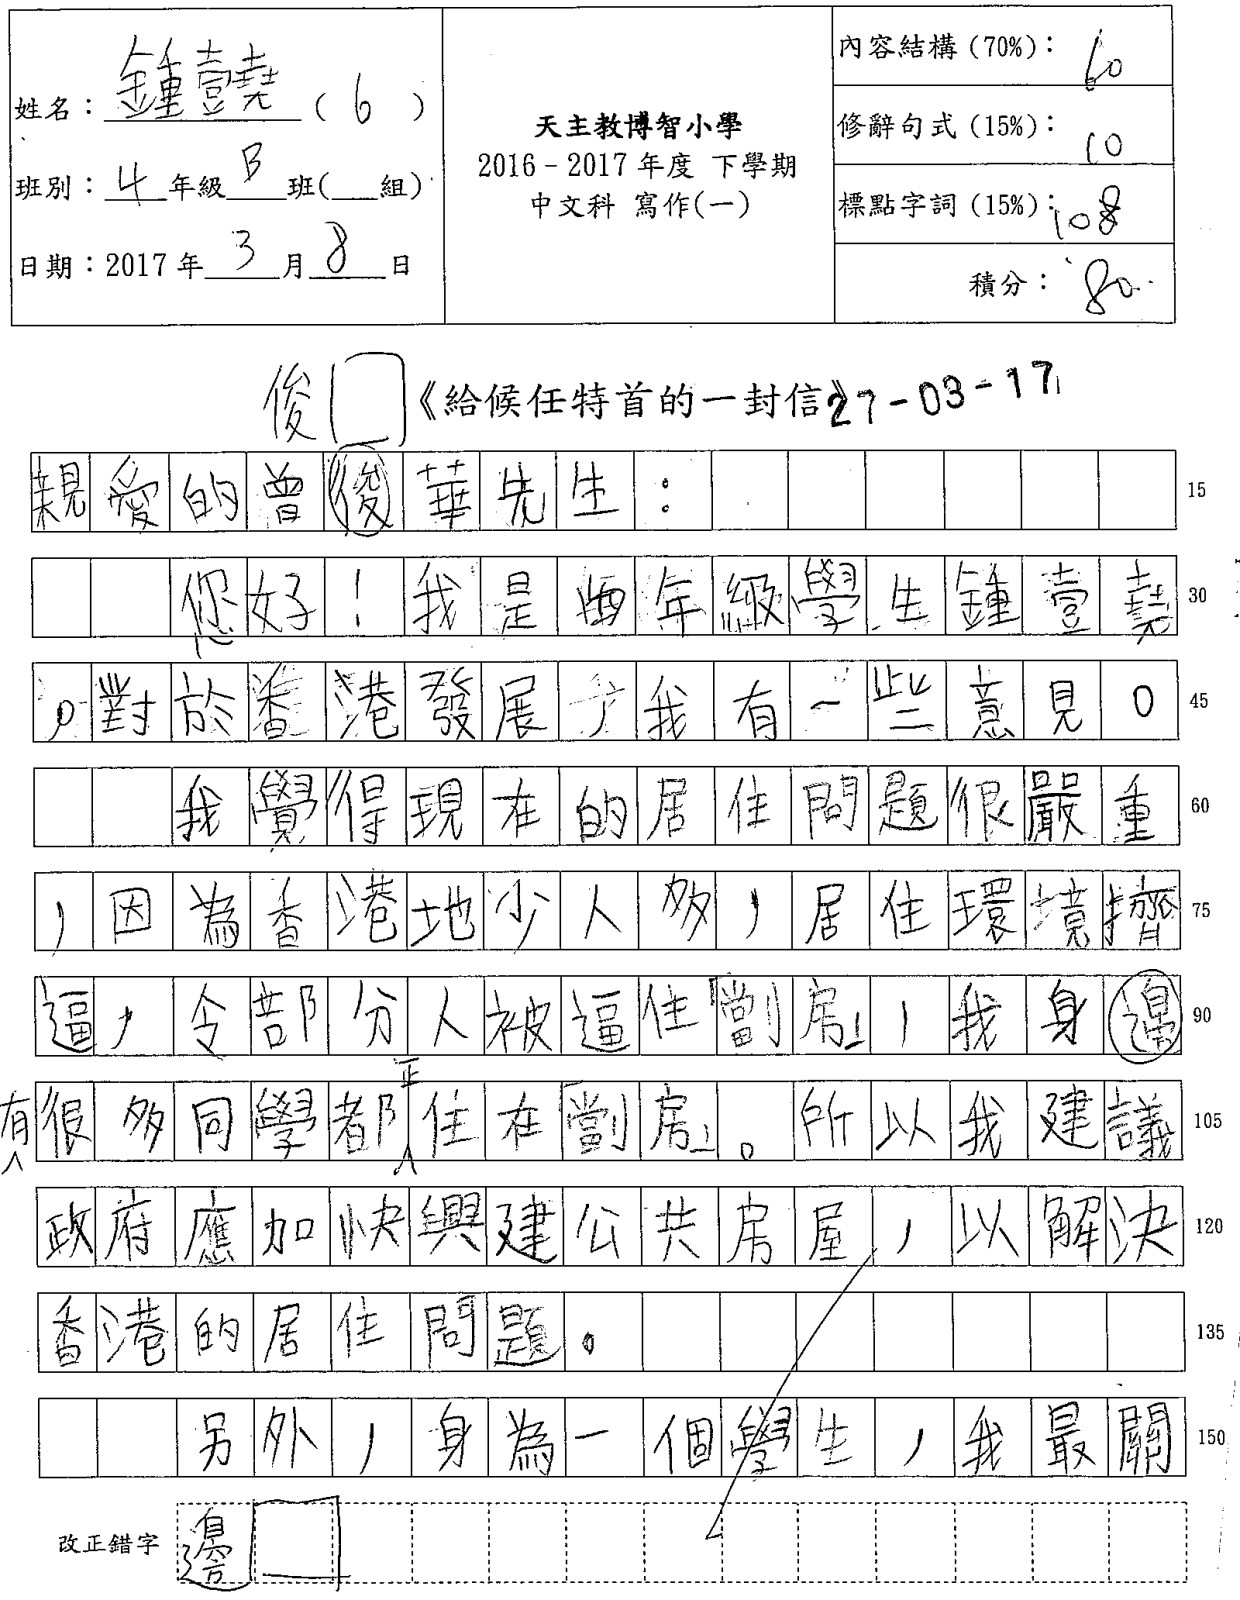 姓名：鍾壹堯（6）
班別：4年級B班(__組)
日期：2017年3月8日
天主教博智小學
2016－2017年度 下學期
中文科 寫作(一)
內容結構(70%)： 60
修辭句式(15%)： 10
標點字詞(15%)： 10
積分： 80
俊《給候任特首的一封信》27-03-17
親愛的曾俊華先生： 15
您好！我是四年級學生鍾壹堯 30
。對於香港發展，我有一些意見。 45
我覺得現在的居住問題很嚴重 60
，因為香港地少人多，居住環境擠 75
逼，令部分人被逼住「劏房」，我身邊 90
有很多同學都正住在「劏房」。所以我建議 105
政府應加快興建公共房屋，以解決 120
香港的居住問題。 135
另外，身為一個學生，我最關 150
改正錯字 邊